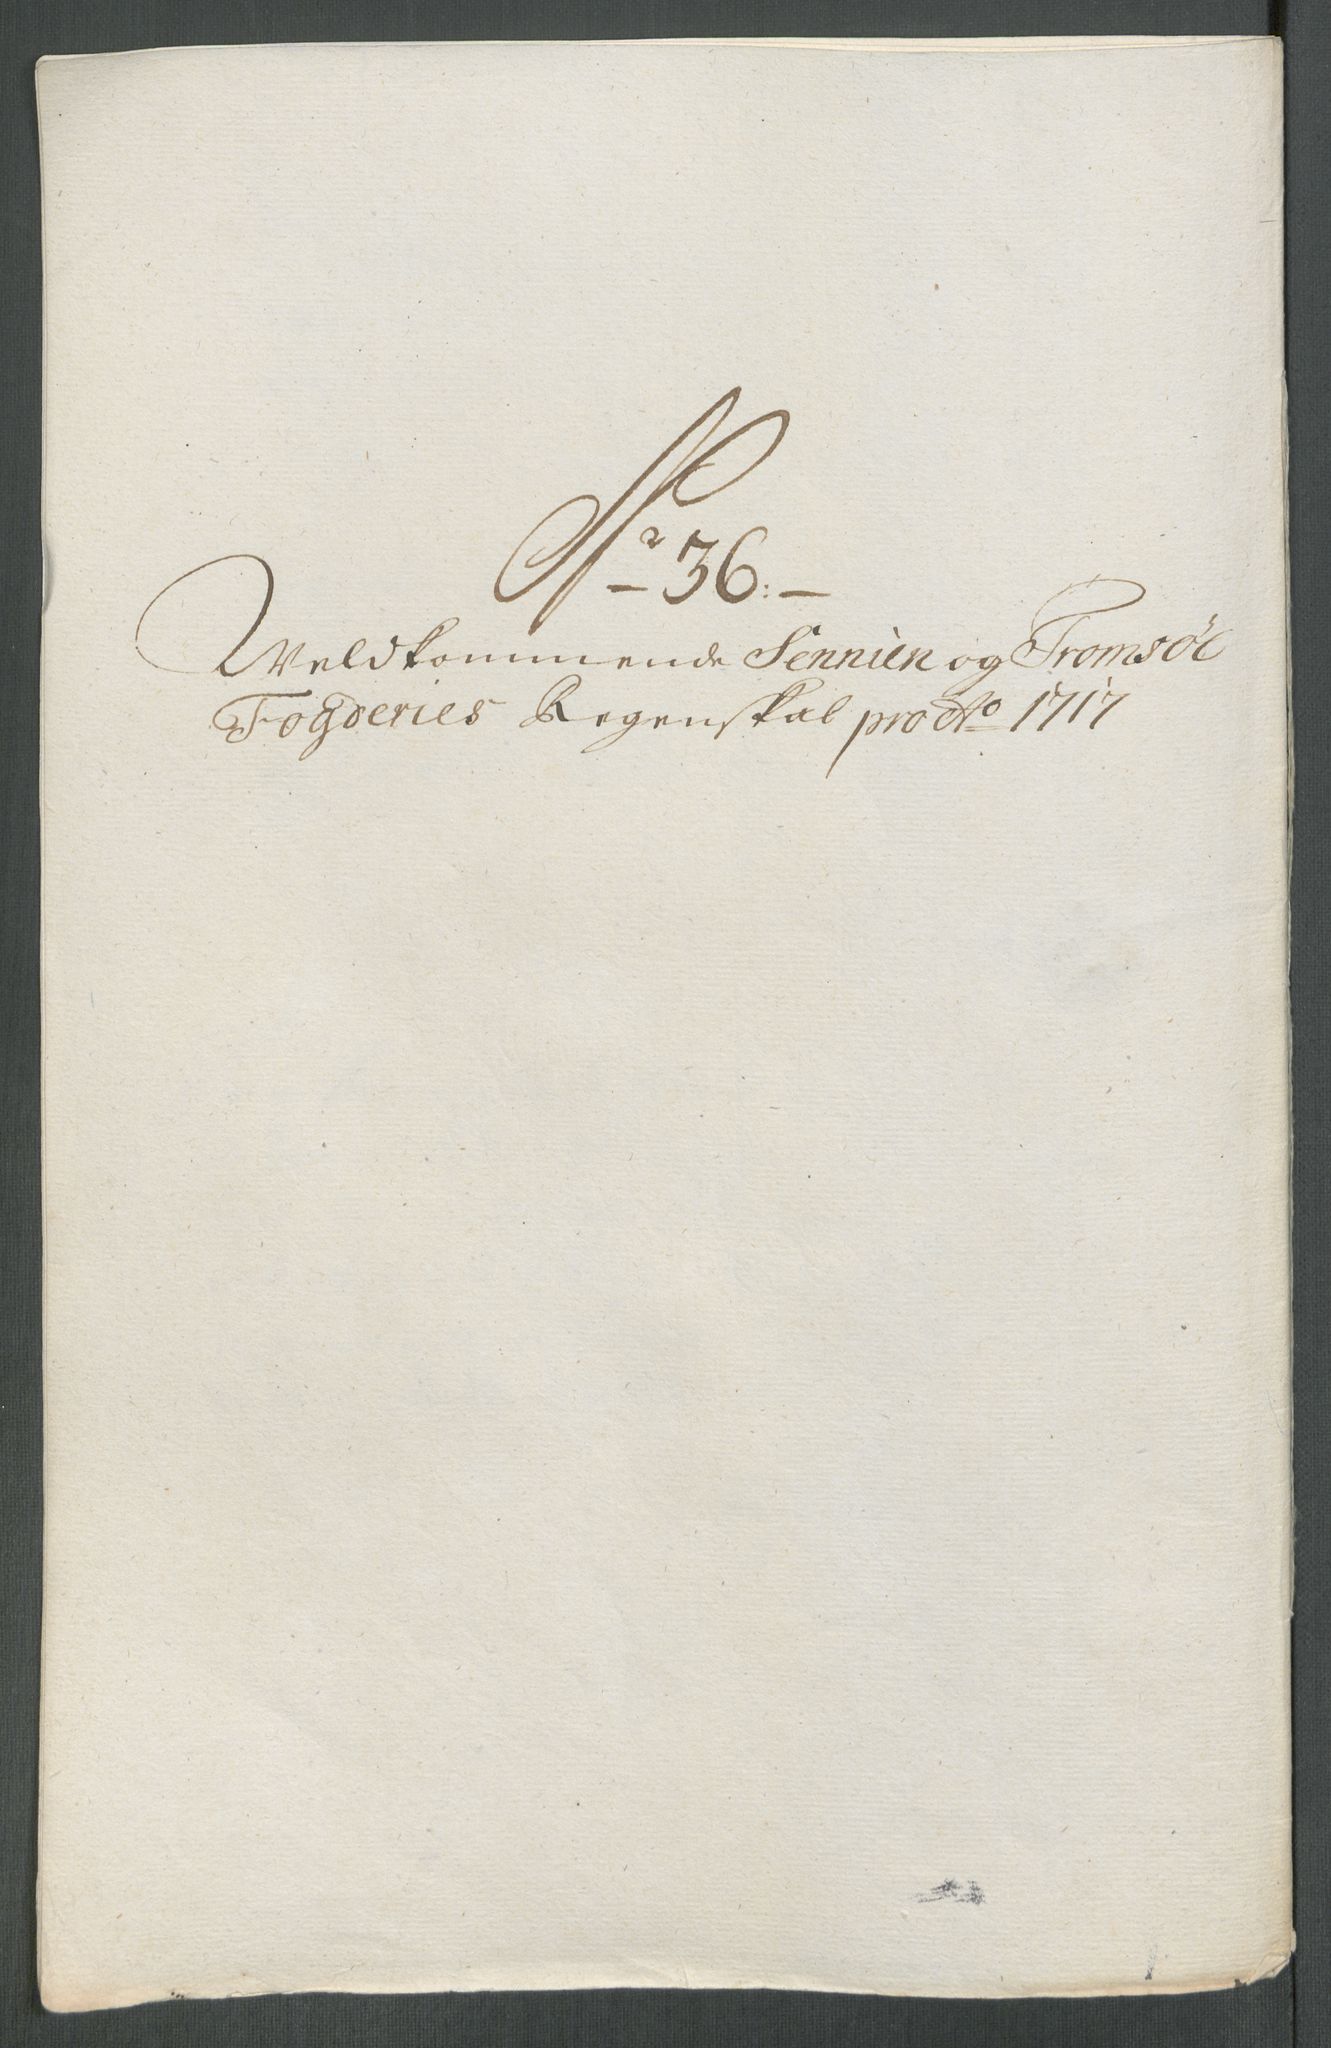 Nr 36:
Vedkommende Sennien og Tromsøe
Fogderies Regenskab pro Ao 1717